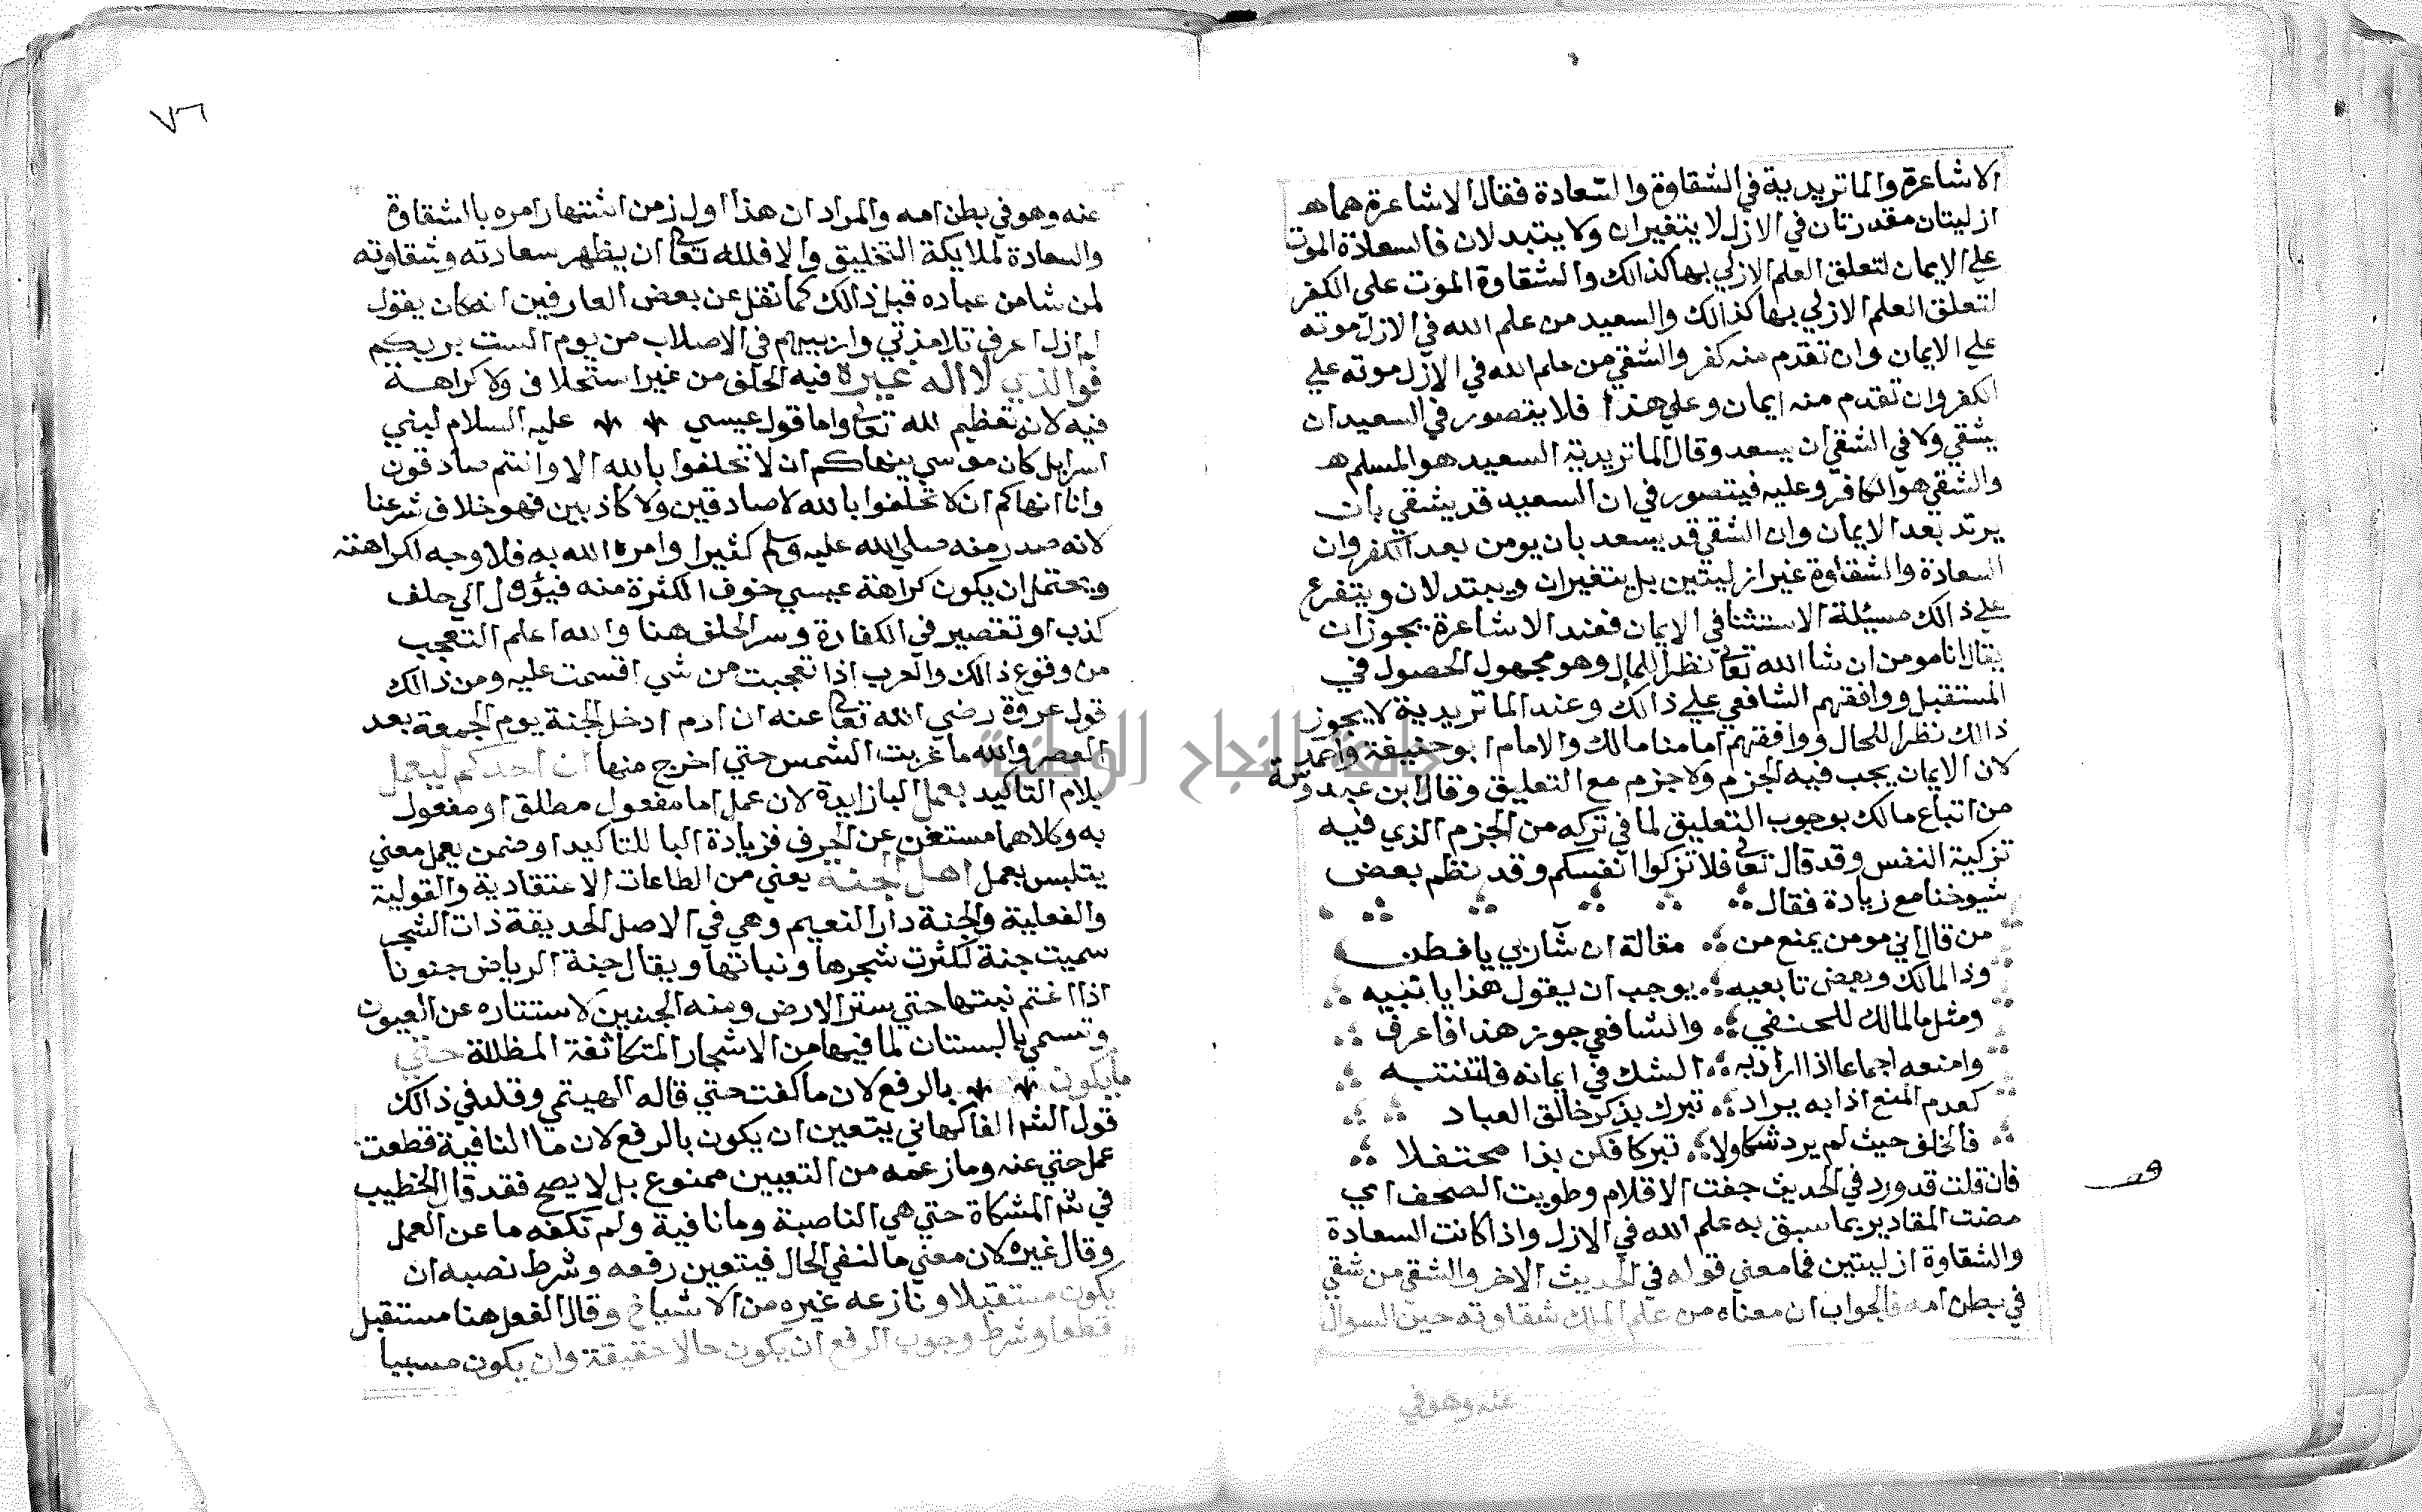 الاشاعرة والماتريدية في الشقاوة والسعادة فقال الاشاعرة هما هـ
ازليتان مقدرتان في الازل لا يتغيران ولا يتبدلان فالسعادة الموت
علي الايمان لتعلق العلم الازلي بها كذالك والشقاوة الموت علي الكفر
لتعلق العلم الازلي بها كذالك والسعيد من علم الله في الازل موته
علي الايمان وان تقدم منه كفر والشقي من علم الله في الازل موته علي
الكفر وان تقدم منه ايمان وعلي هذا فلا يتصور في السعيد ان
يشقي ولا في الشقي ان يسعد وقال الماتريدية السعيد هو المسلم هـ
والشقي هو الكافر وعليه فيتصور في ان السعيد قد يشقي بان
يرتد بعد الايمان وان الشقي قد يسعد بان يومن بعد الكفر وان
السعادة والشقاوة غير ازليتين بل يتغيران ويبتدلان ويتفرع
علي ذالك مسيلة الاستثنا في الايمان فعند الاشاعرة يجوز ان
يقال انا مومن ان شا الله تعالى نظرا للمال وهو مجهول الحصول في
المستقبل ووافقهم الشافعي علي ذالك وعند الماتريدية لا يجوز
ذالك نظرا للحال ووافقهم امامنا مالك والامام ابو حنيفة واحمد
لان الايمان يجب فيه الجزم ولا جزم مع التعليق وقال ابن عبدوس
من اتباع مالك بوجوب التعليق لما في تركه من الجزم الذي فيه
تزكية النفس وقد قال تعالى فلا تزكوا انفسكم وقد نظم بعض
شيوخنا مع زيادة فقال
من قال اني مومن يمنع من مقالة ان شآ ربي يا فطن
وذا لمالك وبعض تابعيه يوجب ان يقول هذا يا نبيه
ومثل ما لمالك للحنفي والشافعي جوز هذا فاعرف
وامنعه اجماعا اذا اراد به الشك في ايمانه فانتبه
كعدم المنع اذا به يراد تبرك بذكر خالق العباد
فالخلف حيث لم يرد شكا ولا تبركا فكن بذا محتفلا
فان قلت قد ورد في الحديث جفت الاقلام وطويت الصحف اي
مضت المقادير بما سبق به علم الله في الازل واذا كانت السعادة
والشقاوة ازليتين فما معني قوله في الحديث الاخر والشقي من شقي
في بطن امه فالجواب ان معناه من علم الملك شقاوته حين السوال
عنه وهو في
٧٦
عنه وهو في بطن امه والمراد ان هذا اول زمن اشتهار امره بالشقاوة
والسعادة لملايكة التخليق والا فلله تعالى ان يظهر سعادته وشقاوته
لمن شا من عباده قبل ذالك كما نقل عن بعض العارفين انه كان يقول
لم ازل اعرف تلامذتي واربيهم في الاصلاب من يوم الست بربكم
فوالذي لا اله غيره فيه الحلف من غير استحلاف ولا كراهة
فيه لانه تعظيم لله تعالى واما قول عيسي عليه السلام لبني
اسرايل كان موسي ينهاكم ان لا تحلفوا بالله الا وانتم صادقون
وانا انهاكم ان لا تحلفوا بالله لا صادقين ولا كاذبين فهو خلاف شرعنا
لانه صدر منه صلي الله عليه وسلم كثيرا وامره الله به فلا وجه لكراهته
ويحتمل ان يكون كراهة عيسي خوف الكثرة منه فيؤول الي حلف
كذب او تقصير في الكفارة وسر الحلف هنا والله اعلم التعجب
من وقوع ذالك والعرب اذا تعجبت من شي اقسمت عليه ومن ذالك
قول عروة رضي الله تعالى عنه ان ادم ادخل الجنة يوم الجمعة بعد
العصر والله ما غربت الشمس حتي اخرج منها ان احدكم ليعمل
بلام التاكيد بعمل البا زايدة لان عمل اما مفعول مطلق او مفعول
به وكلاهما مستغن عن الحرف فزيادة البا للتاكيد او ضمن يعمل معني
يتلبس بعمل اهل الجنة يعني من الطاعات الاعتقادية والقولية
والفعلية والجنة دار النعيم وهي في الاصل الحديقة ذات الشجر
سميت جنة لكثرت شجرها ونباتها ويقال جنة الرياض جنونا
اذا اغتم نبتها حتي ستر الارض ومنه الجنين لاستتاره عن العيون
وتسمي بالبستان لما فيها من الاشجار المتكاثفة المظللة حتي
ما يكون بالرفع لان ما كفت حتي قاله الهيتمي وقلد في ذالك
قول الشر الفاكهاني يتعين ان يكون بالرفع لان ما النافية قطعت
عمل حتي عنه وما زعمه من التعيين ممنوع بل لا يصح فقد قال الخطيب
في شر المشكاة حتي هي الناصبة وما نافية ولم تكفه ما عن العمل
وقال غيره لان معني ما لنفي الحال فيتعين رفعه وشرط نصبه ان
يكون مستقبلا ونازعه غيره من الاشياخ وقال الفعل هنا مستقبل
قطعا وشرط وجوب الرفع ان يكون حالا حقيقة وان يكون مسببا
جامعة النجاح الوطنية